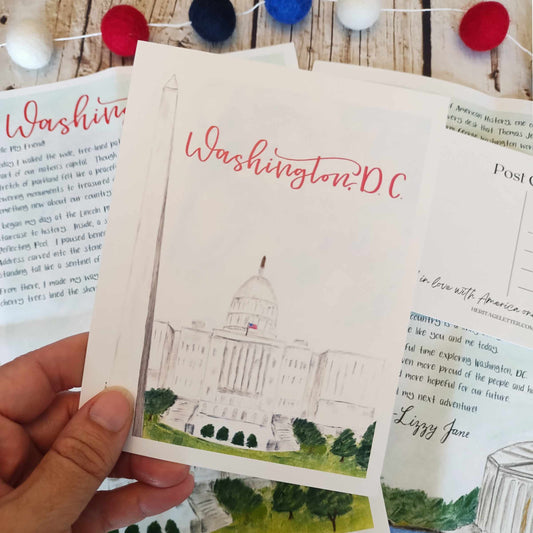 Washington, D.C.
Washin
My Friend!
I walked the wide, tree-lined
of our nation's capital. Though
stretch of parkland felt like a peace
towering monuments to treasured
something new about our country
began my day at the Lincoln
staircase to history. Inside, a
Reflecting Pool. I paused
Address carved into the stone
standing tall like a sentinel of
From there, I made my way
cherry trees lined the shor
of American History, one
every desk that Thomas Je
George Washington wor
Post
in love with America one
HERITAGELETTER.COM
country is a
like you and me today.
ful time exploring Washington, DC.
even more proud of the people and
more hopeful for our future.
my next adventure!
-Lizzy Jane